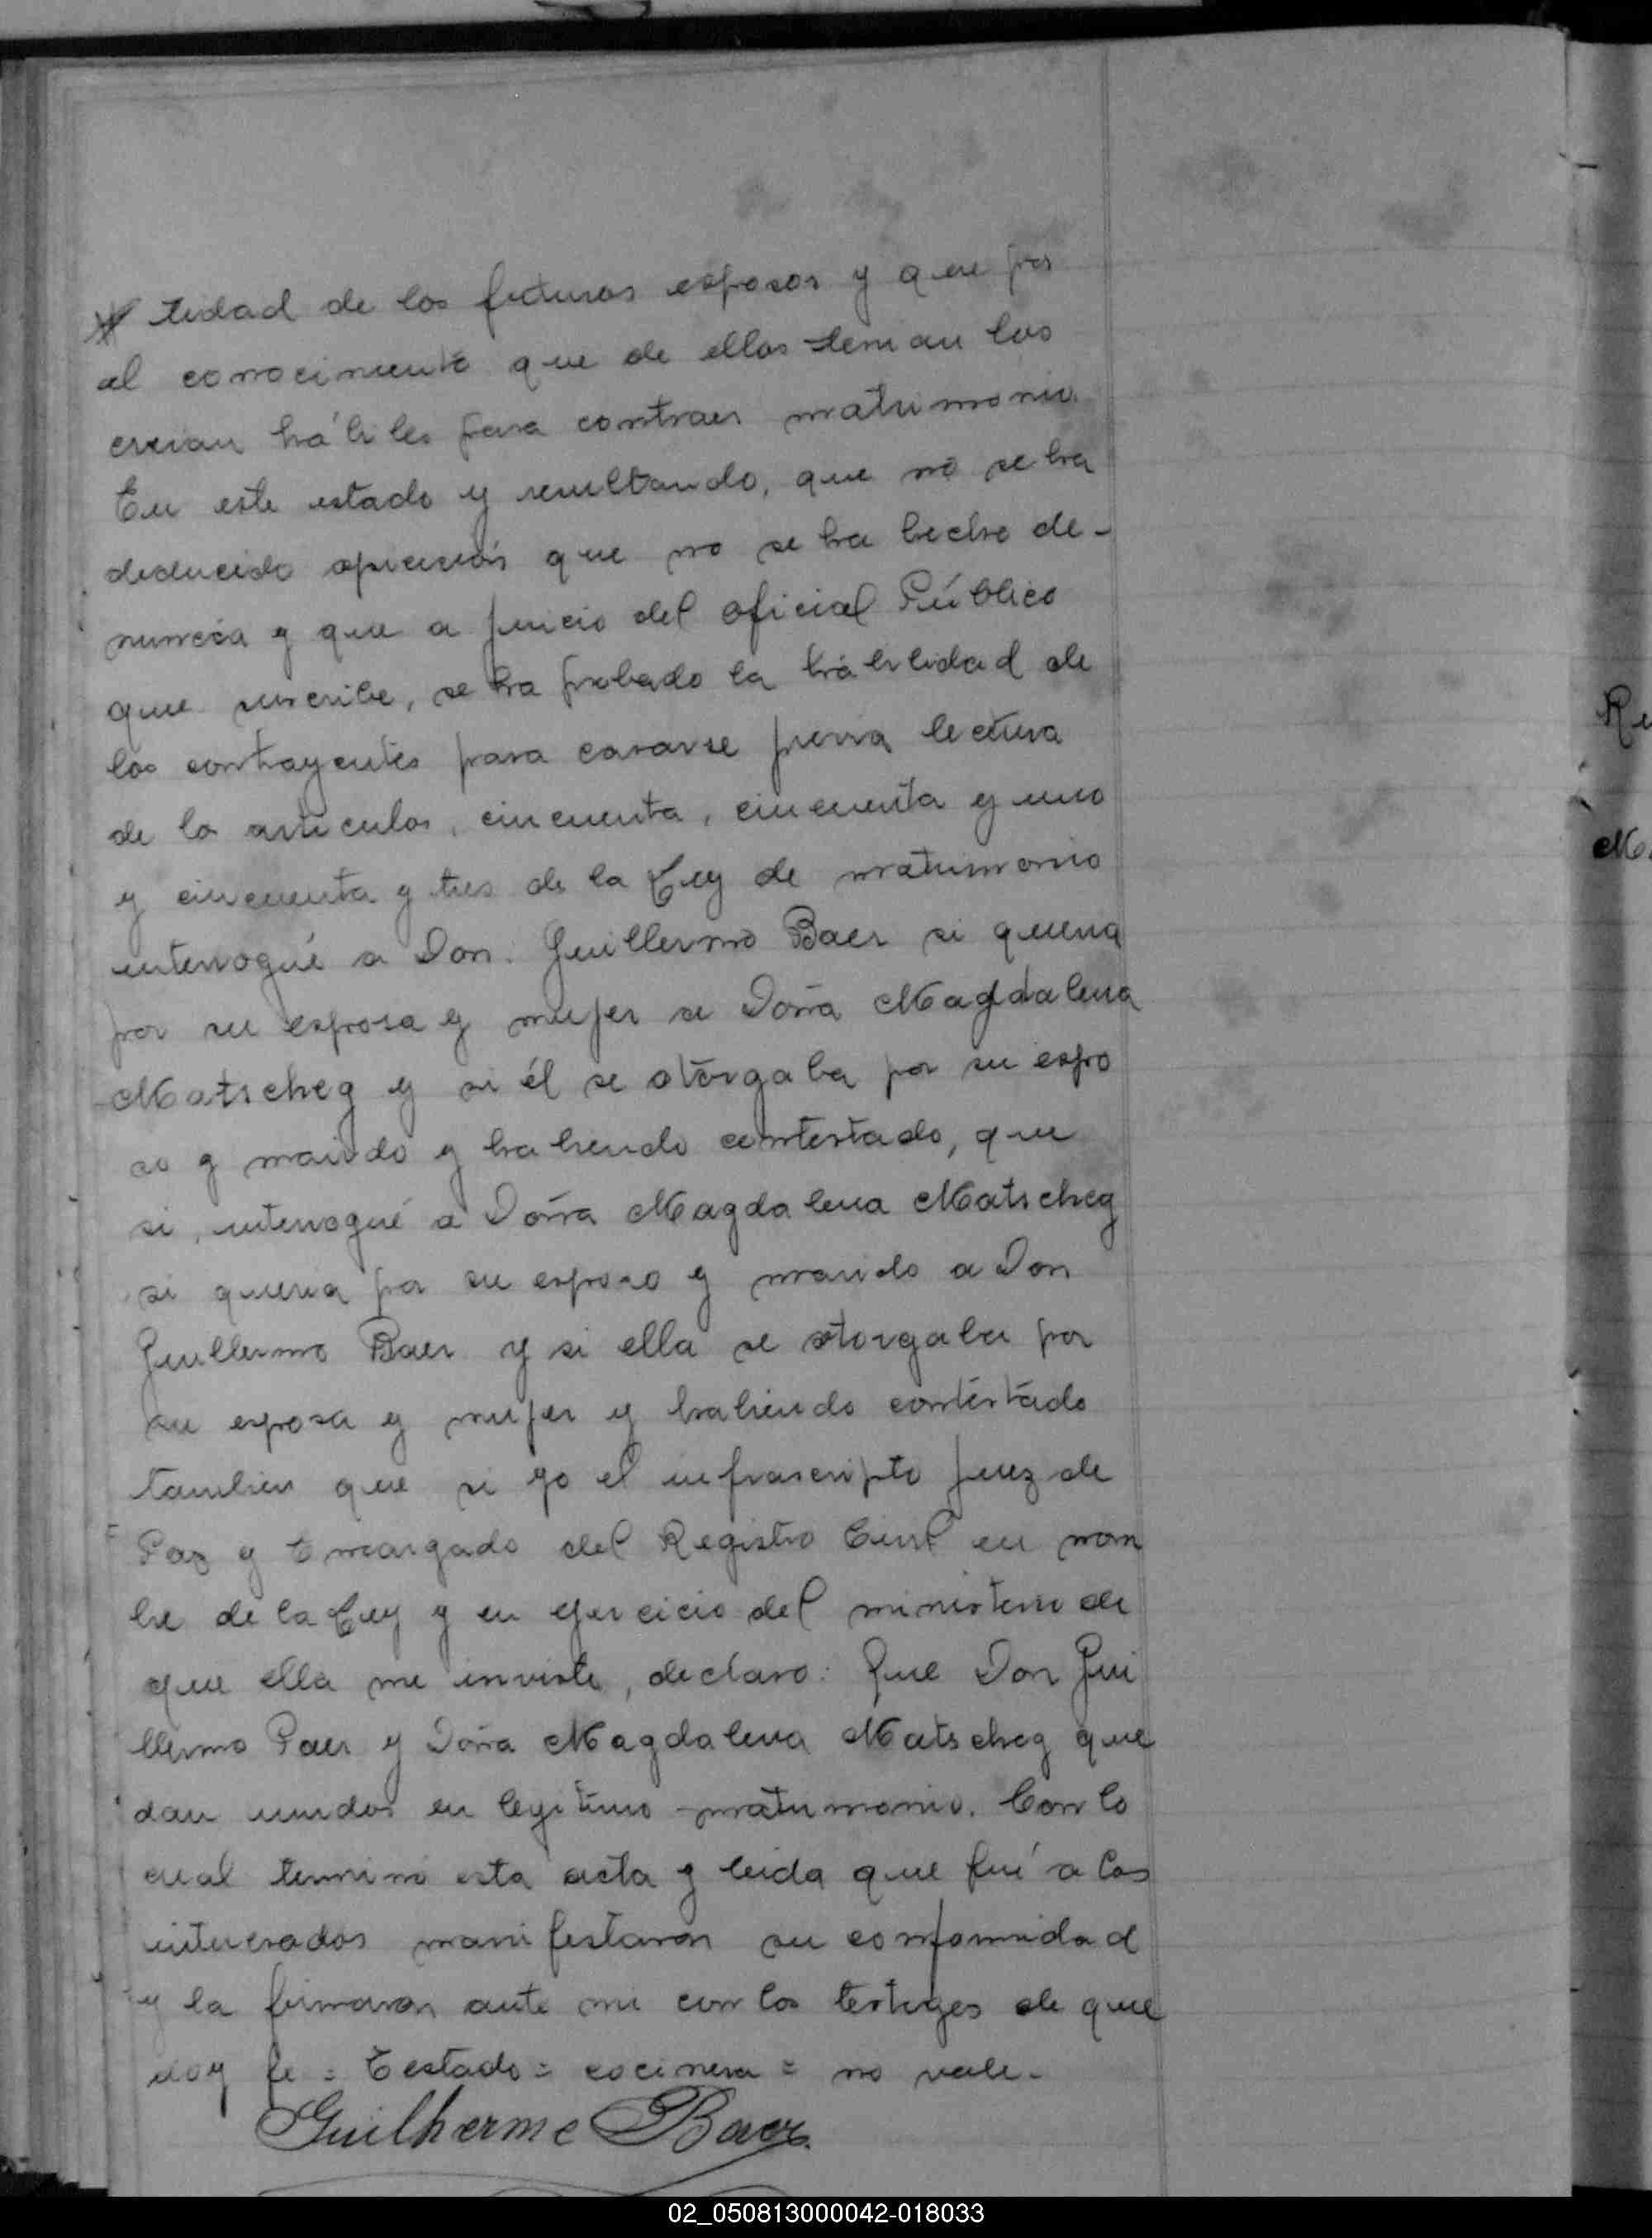 tidad de los futuros esposos y que por
el conocimiento que de ellos tenian los
creian hábiles para contraer matrimonio.
En este estado y resultando, que no se ha
deducido oposición que no se ha hecho de-
nuncia y que a juicio del oficial Público
que suscribe, se ha probado la hábilidad de
los contrayentes para casarse previa lectura
de lo articulos, cincuenta, cincuenta y uno
y cincuenta y tres de la Ley de matrimonio
interrogué a Don. Guillermo Baer si queria
por su esposa y mujer a Doña Magdalena
Matscheg y si él se otorgaba por su espo
so y marido y habiendo contestado, que
si, interrogué a Doña Magdalena Matscheg
si queria por su esposo y marido a Don
Guillermo Baer y si ella se otorgaba por
su esposa y mujer y habiendo contestado
tambien que si yo el infrascripto Juez de
Paz y Encargado del Registro Civil en nom
bre de la Ley y en ejercicio del ministerio de
que ella me inviste, declaro: Que Don Gui
llermo Baer y Doña Magdalena Matscheg que
dan unidos en legitimo matrimonio. Con lo
cual terminó esta acta y leida que fué a los
interesados manifestaron su conformidad
y la firmaron ante mi con los testigos de que
doy fe = Testado = cocinera = no vale.-
Guilherme Baer
Re
M.
02_050813000042-018033